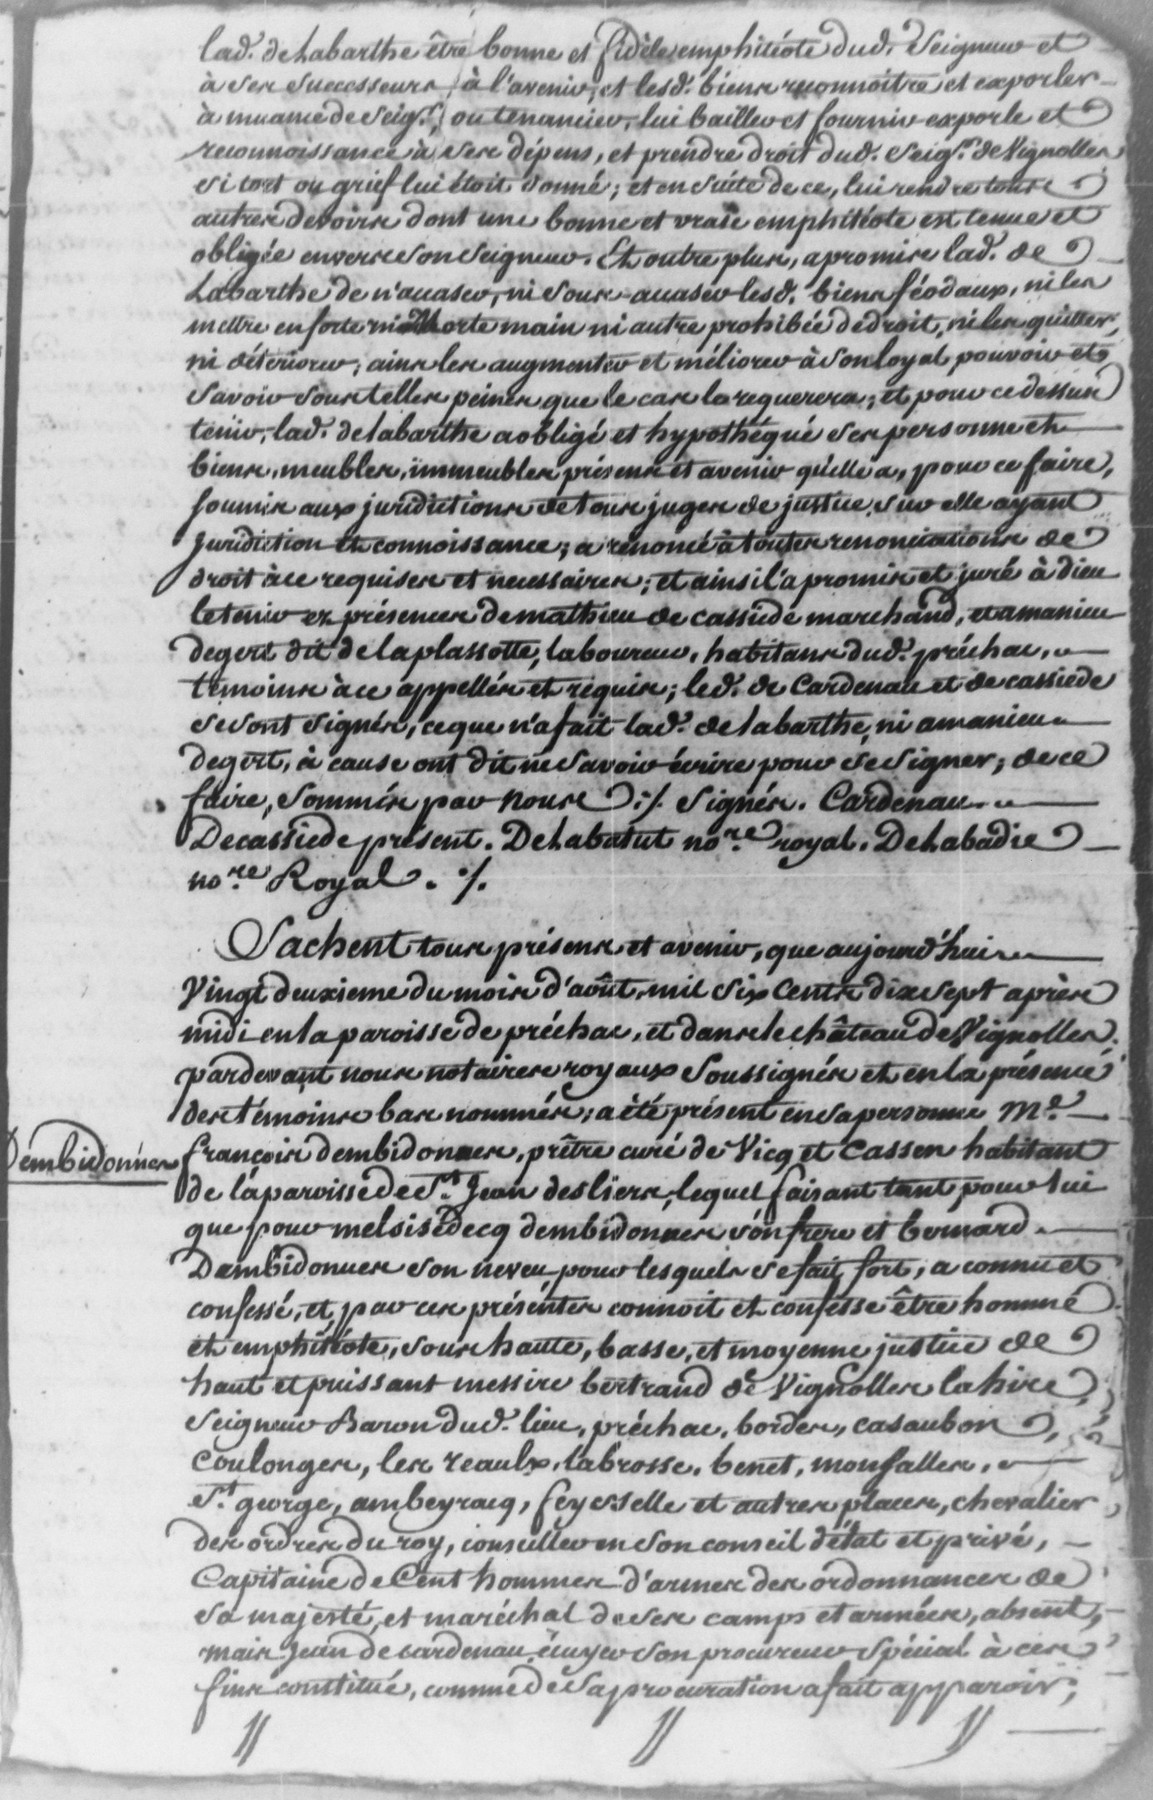 lad. de Labarthe être bonne et fidèle emphitéote dud. Seigneur et
à ses successeurs, à l'avenir, et lesd. biens reconnoitre et exporler
à muance de Seigr., ou tenancier, lui bailler et fournir exporle et
reconnoissance à ses dépens, et prendre droit dud. Seigr. de Vignolles
si tort ou grief lui étoit donné; et en suite de ce, lui rendre tous
autres devoirs dont une bonne et vraie emphitéote est tenue et
obligée envers son Seigneur. Et outre plus, a promis lad. de
Labarthe de n'auaser, ni sous-auaser lesd. biens féodaux, ni les
mettre en forte ni Morte main ni autre prohibée de droit, ni les quitter,
ni détériorer; ains les augmenter et méliorer à son loyal pouvoir et
savoir sous telles peines que le cas le requerera; et pour ce dessus
tenir, lad. de labarthe a obligé et hypothéqué ses personne et
biens, meubles, immeubles présens et avenir qu'elle a, pour ce faire,
soumis aux juridictions de tous juges de justice, sur elle ayant
juridiction et connoissance; a renoncé à toutes renonciations de
droit à ce requises et necessaires; et ainsi l'a promis et juré à dieu
le tenir ez présences de mathieu de cassiede marchand, et amanieu
degert dit de laplassotte, laboureur, habitans dud. préchac,
témoins à ce appellés et requis; led. de Cardenau et de cassiede
se sont signés, ce que n'a fait lad. de labarthe, ni amanieu
degert, à cause ont dit ne savoir écrire pour se signer; de ce
faire, sommés par nous ./. Signés. Cardenau.
Decassiede présent. De Labatut nore. royal. De Labadie
nore Royal. ./.
Sachent tous présens et avenir, que aujourd'hui
Vingt deuxieme du mois d'août, mil six Cents dix sept après
midi en la paroisse de préchac, et dans le château de Vignolles
pardevant nous notaires royaux soussignés et en la présence
des témoins bas nommés; a été présent en sa personne Me.
Dembidonnes
françois dembidonnes, prêtre curé de Vicq et Cassen habitant
de la paroisse de St. Jean desliers, lequel faisant tant pour lui
que pour melsisedecq dembidonnes son frere et bernard
Dambidonnes son neveu, pour lesquels se fait fort, a connu et
confessé, et par ces présentes connoit et confesse être homme
et emphitéote, sous haute, basse, et moyenne justice de
haut et puissant messire bertrand de Vignolles lahire
Seigneur Baron dud. lieu, préchac, bordes, casaubon
Coulonges, les reaulx, labrosse, benet, monfalles,
St. george, ambeyracq, feyesselle et autres places, chevalier
des ordres du roy, conseiller en son conseil d'état et privé,
Capitaine de Cent hommes d'armes des ordonnances de
sa majesté, et maréchal de ses camps et armées, absent,
mais jean de cardenau écuyer son procureur spécial à ces
fins constitué, comme de sa procuration a fait apparoir;